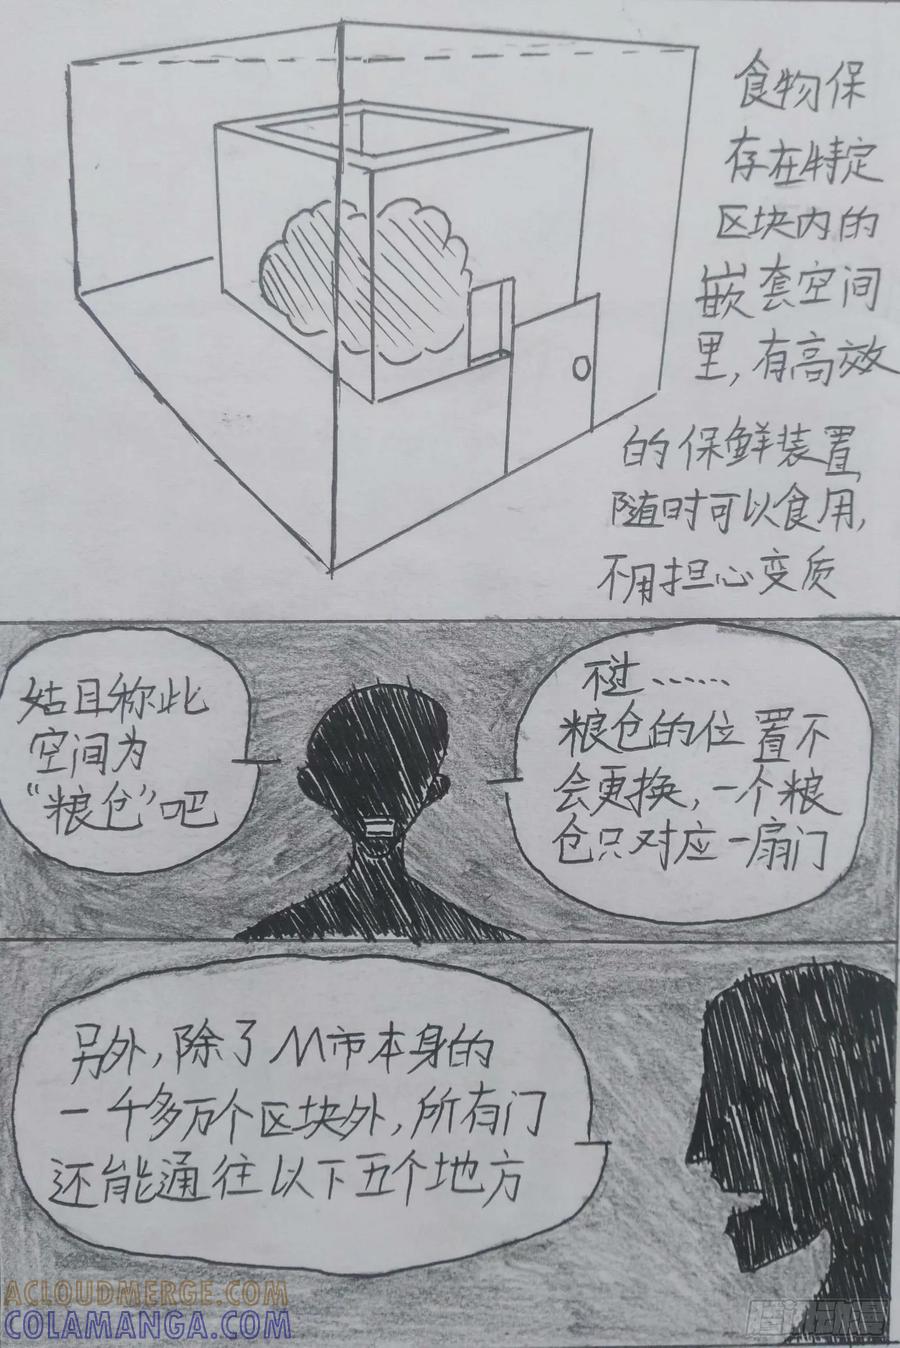 食物保
存在特定
区块内的
嵌套空间
里，有高效
的保鲜装置，
随时可以食用，
不用担心变质
姑且称此
空间为
“粮仓”吧
不过……
粮仓的位置不
会更换，一个粮
仓只对应一扇门
另外，除了M市本身的
一千多万个区块外，所有门
还能通往以下五个地方
ACLOUDMERGE.COM
COLAMANGA.COM